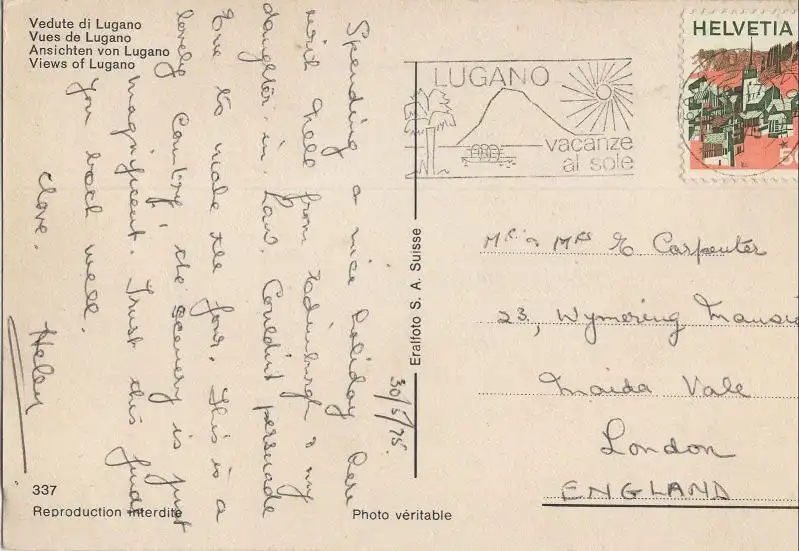 Vedute di Lugano
Vues de Lugano
Ansichten von Lugano
Views of Lugano
Spending a nice holiday here
with Nell from Edinburgh & my
daughter-in-Law. Couldn't persuade
to make the four. This is a
lovely Country, the scenery is just
magnificent. Trust this finds
you both well.
Love.
30/5/75.
Eralfoto S. A. Suisse
LUGANO
vacanze
al sole
HELVETIA
50
Mr & Mrs E Carpenter
23, Wymering Mansi
Maida Vale
London
ENGLAND
337
Reproduction interdite
Photo véritable